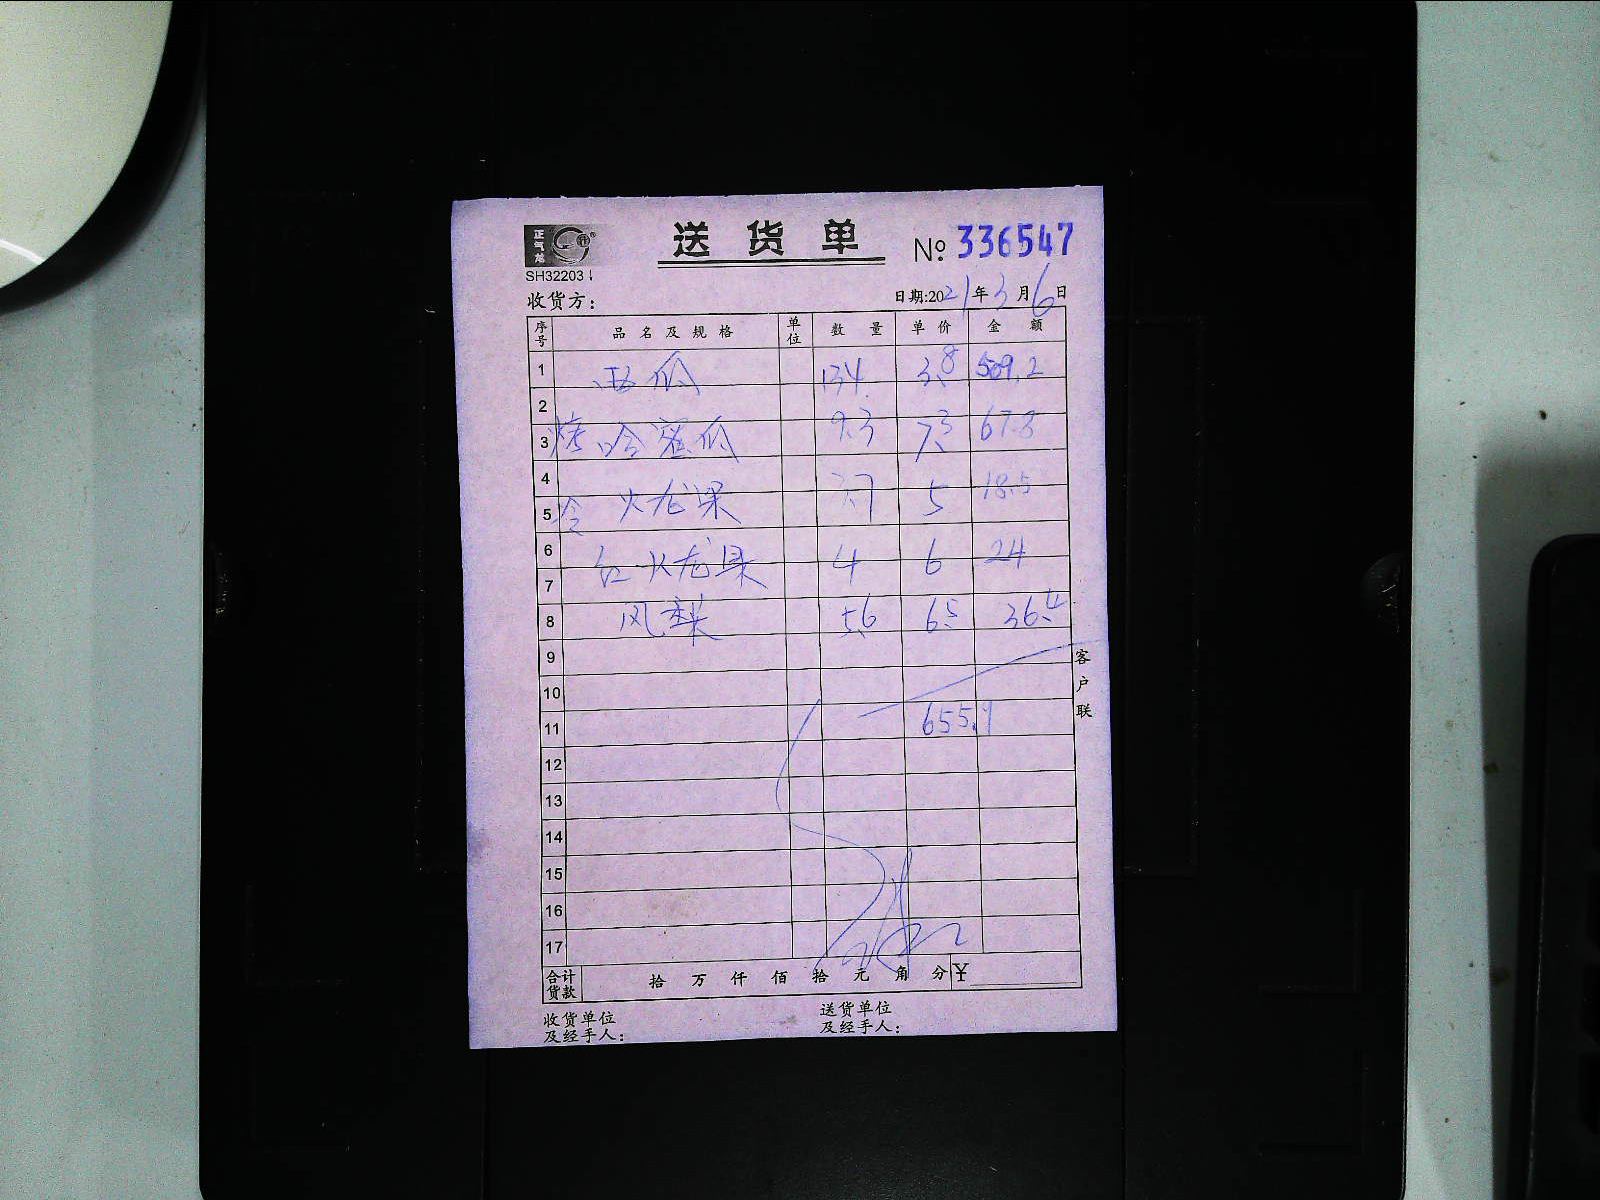 正气龙
送货单 № 336547
SH32203
收货方: 日期:2021年3月6日
序号 品名及规格 单位 数量 单价 金额
1 西瓜 134 3.8 509.2
2
3 烤哈蜜瓜 9.3 7.3 67.8
4
5 火龙果 3.7 5 18.5
6
7 红火龙果 4 6 24
8 风梨 5.6 6.5 36.4
9
10
11 655.9
12
13
14
15
16
17
合计货款 拾 万 仟 佰 拾 元 角 分 ¥
收货单位及经手人: 送货单位及经手人:
客户联